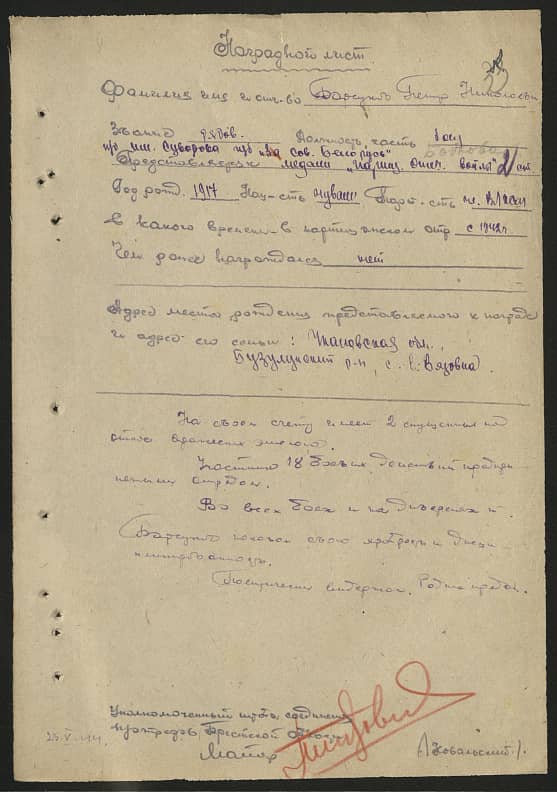 Наградной лист
Фамилия имя и отч-во Барсуков Петр Николаевич
Звание рядов. Должность, часть боец
п/о им. Суворова п/бр "За Сов. Белорусь"
Представляется к медали "Партиз. отеч. войны" 2 ст.
Год рожд. 1917 Нац-сть чуваш Парт-сть чл. ВЛКСМ
С какого времени в партизанском отр. с 1942 г.
Чем ранее награждался нет
Адрес места рождения представляемого к награде
и адрес его семьи: обл.
Бузулукский р-н, с. Вязовка.
На своем счету имеет 2 спущенных под
откос вражеских эшелона.
Участник 18 боевых действий проведен-
ных отрядом.
Во всех боях и на диверсиях т.
Барсуков показал свою храбрость и дисци-
плинированность.
Политически выдержан. Родине предан.
Уполномоченный штаба соединения
партотрядов Брестской области
Майор /Ковальский/.
25.V.44